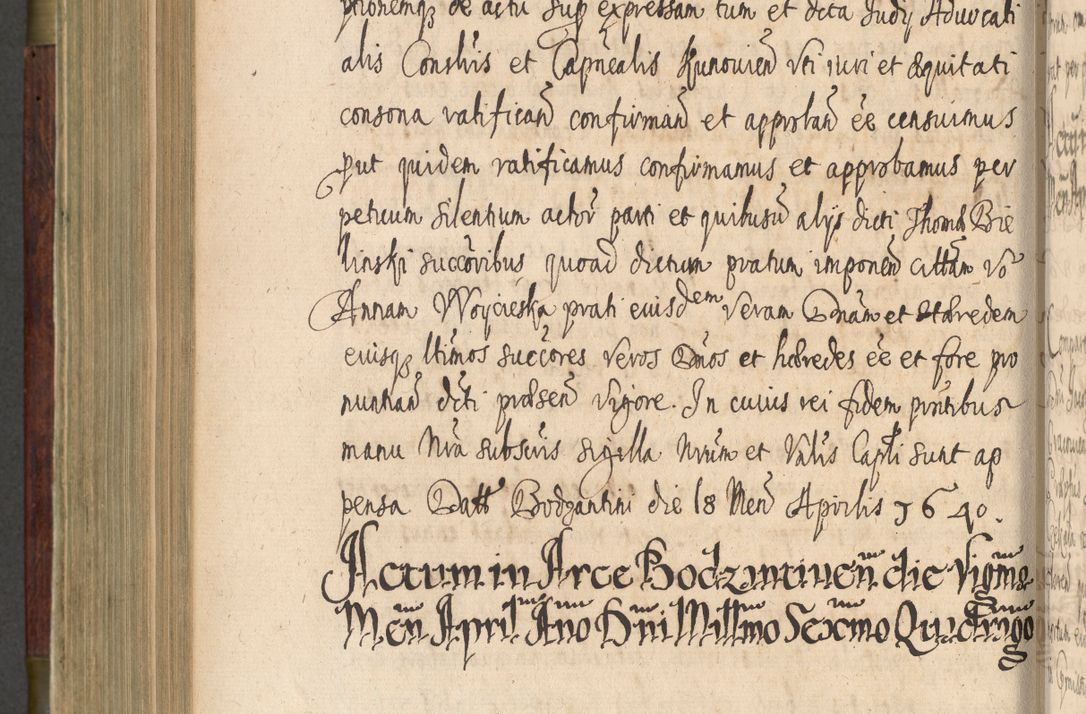 ptionemqꝫ de actu sup expressam tum et dcta Judy Aduocati
alis Conslris et Capnealis Kunouien̄ vti iuri et æquitati
consona ratifican̄ confirman̄ et approban̄ ēē censuimus
put quidem ratificamus confirmamus et approbamus per
petuum silentium actor̄ parti et quibusū alijs dicti Thomæ Bie
linski succōribus quoad dictum pratum imponen̄ cittām vō
Annam Woycieska prati eiusdem veram Dnām et Hæredem
eiusqꝫ ltimos succōres veros Dnōs et hæredes ēē et fore pro
nuntian̄ dcti præsen̄ vigore. In cuius rei fidem pntibus
manu Nrā subscris sigilla Nrum et Vnlis Capli sunt ap
pensa Datt Bodzantini die 18 Men̄ Aprilis 1640.
Actum in Arce Bodzantinen̄ die Vigma
Men̄ April Ano Dni Millmo Sexcmo Quadrngo